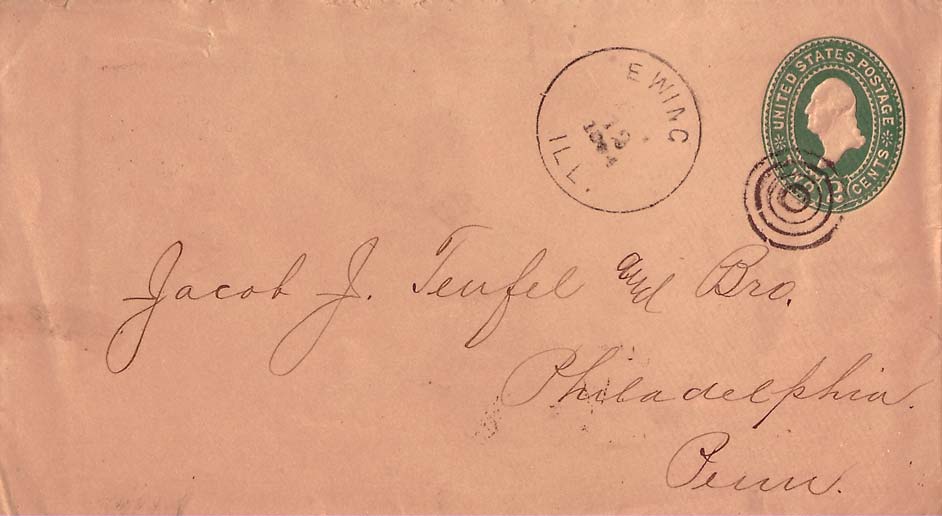 EWING
13
ILL.
UNITED STATES POSTAGE
CENTS
Jacob J. Teufel and Bro.
Philadelphia.
Penn.